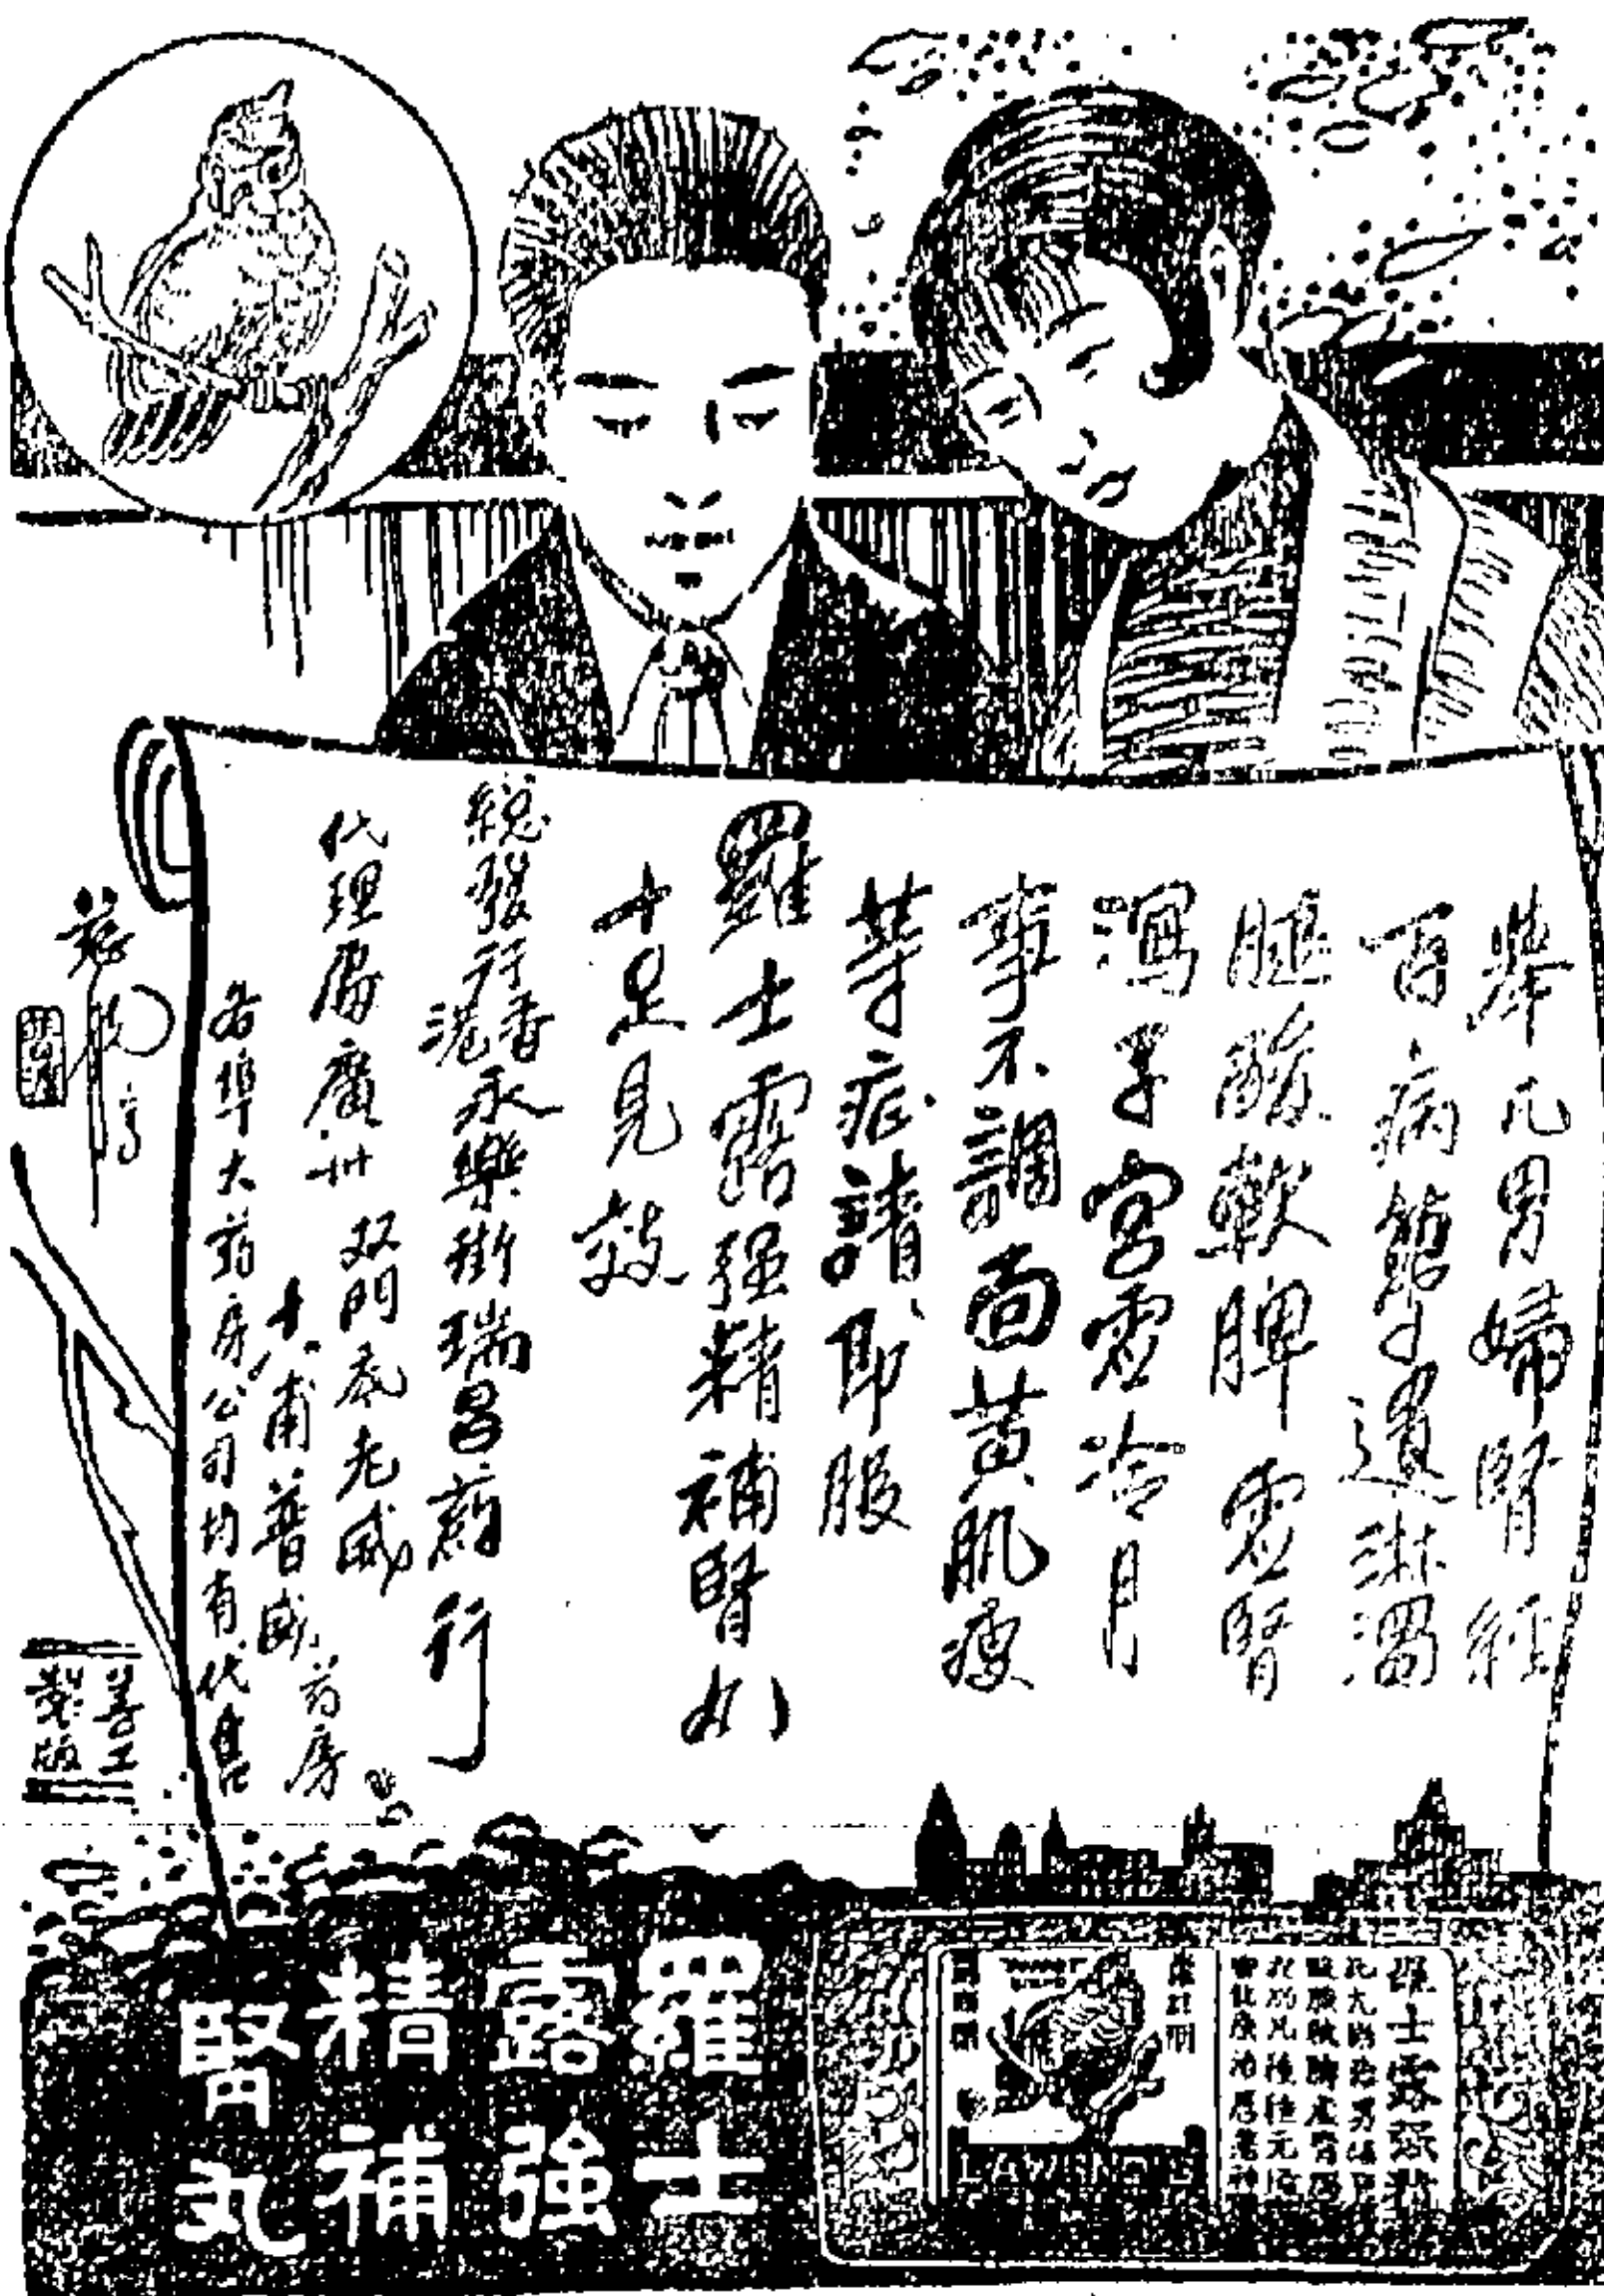 舉凡男婦腎經
百病夢遺淋濁
腿酸軟脾虧腎
瀉子宮虧冷月
事不調面黃肌瘦
等症請即服
羅士露强精補腎丸
十足見效
総發行香港永樂街瑞昌葯行
代理處廣州双門底老威
十八甫普威葯房
各埠大葯房公司均有代售
製版
羅士
露強
精補
腎丸
羅士露強精